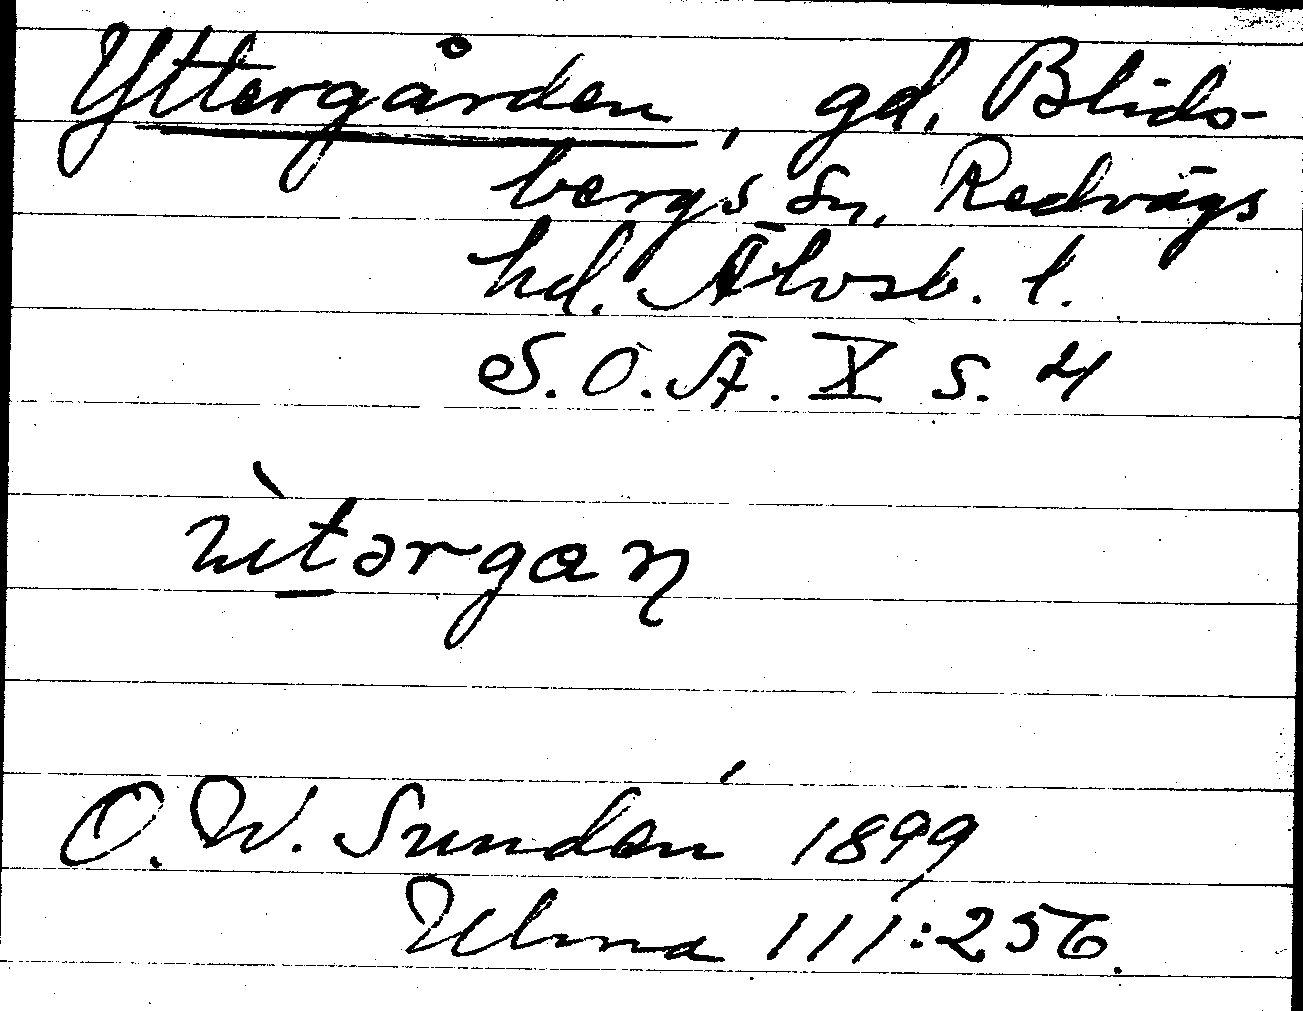 Yttergården, gd, Blids-
bergs sn, Redvägs
hd. Älvsb. l.
S.O.Ä. X s. 4
ùtərgaɳ
O. W. Sundén 1899
Ulma 111:256.